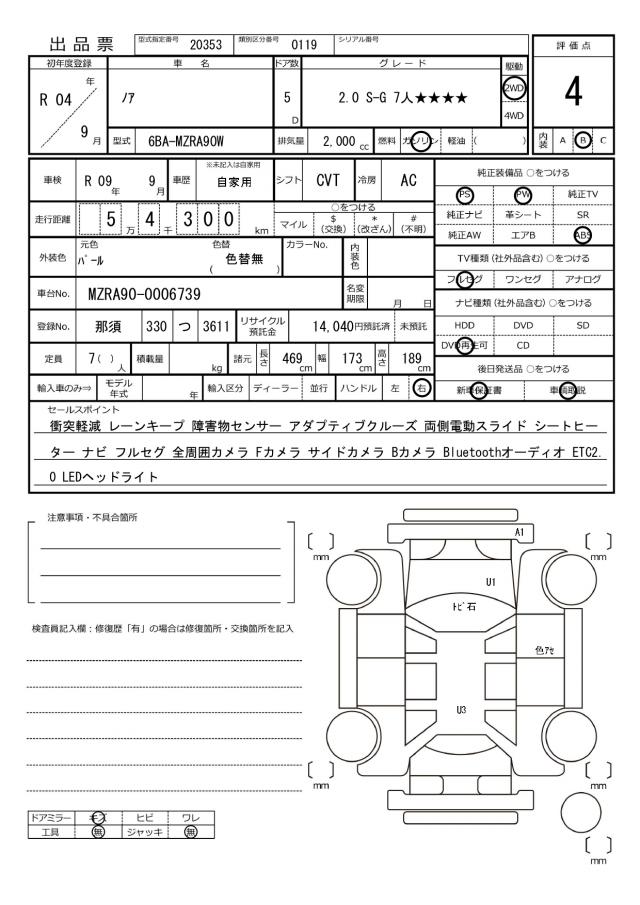 出品票 型式指定番号 20353 類別区分番号 0119 シリアル番号
評価点
4
初年度登録 車名 ドア数 グレード 駆動
R 04 年 9 月
ノア
5 D
2.0 S-G 7人★★★★
2WD
4WD
型式 6BA-MZRA90W 排気量 2,000 cc 燃料 ガソリン 軽油 ( )
内装 A B C
車検 R 09 年 9 月 車歴 ※未記入は自家用 自家用 シフト CVT 冷房 AC
走行距離 5 万 4 千 3 0 0 km
○をつける
マイル $(交換) *(改ざん) #(不明)
外装色 元色 パール 色替 色替無 ( ) カラーNo. 内装色
車台No. MZRA90-0006739 名変期限 月 日
登録No. 那須 330 つ 3611 リサイクル預託金 14,040円預託済 未預託
定員 7( )人 積載量 kg 諸元 長さ 469 cm 幅 173 cm 高さ 189 cm
輸入車のみ⇒ モデル年式 年 輸入区分 ディーラー 並行 ハンドル 左 右
純正装備品 ○をつける
PS PW 純正TV
純正ナビ 革シート SR
純正AW エアB ABS
TV種類(社外品含む) ○をつける
フルセグ ワンセグ アナログ
ナビ種類(社外品含む) ○をつける
HDD DVD SD
DVD再生可 CD
後日発送品 ○をつける
新車保証書 車輌取説
セールスポイント
衝突軽減 レーンキープ 障害物センサー アダプティブクルーズ 両側電動スライド シートヒー
ター ナビ フルセグ 全周囲カメラ Fカメラ サイドカメラ Bカメラ Bluetoothオーディオ ETC2.
0 LEDヘッドライト
注意事項・不具合箇所
検査員記入欄：修復歴「有」の場合は修復箇所・交換箇所を記入
ドアミラー キズ ヒビ ワレ
工具 無 ジャッキ 無
A1
[ ] mm
[ ] mm
U1
トビ石
色アセ
U3
[ ] mm
[ ] mm
[ ] mm